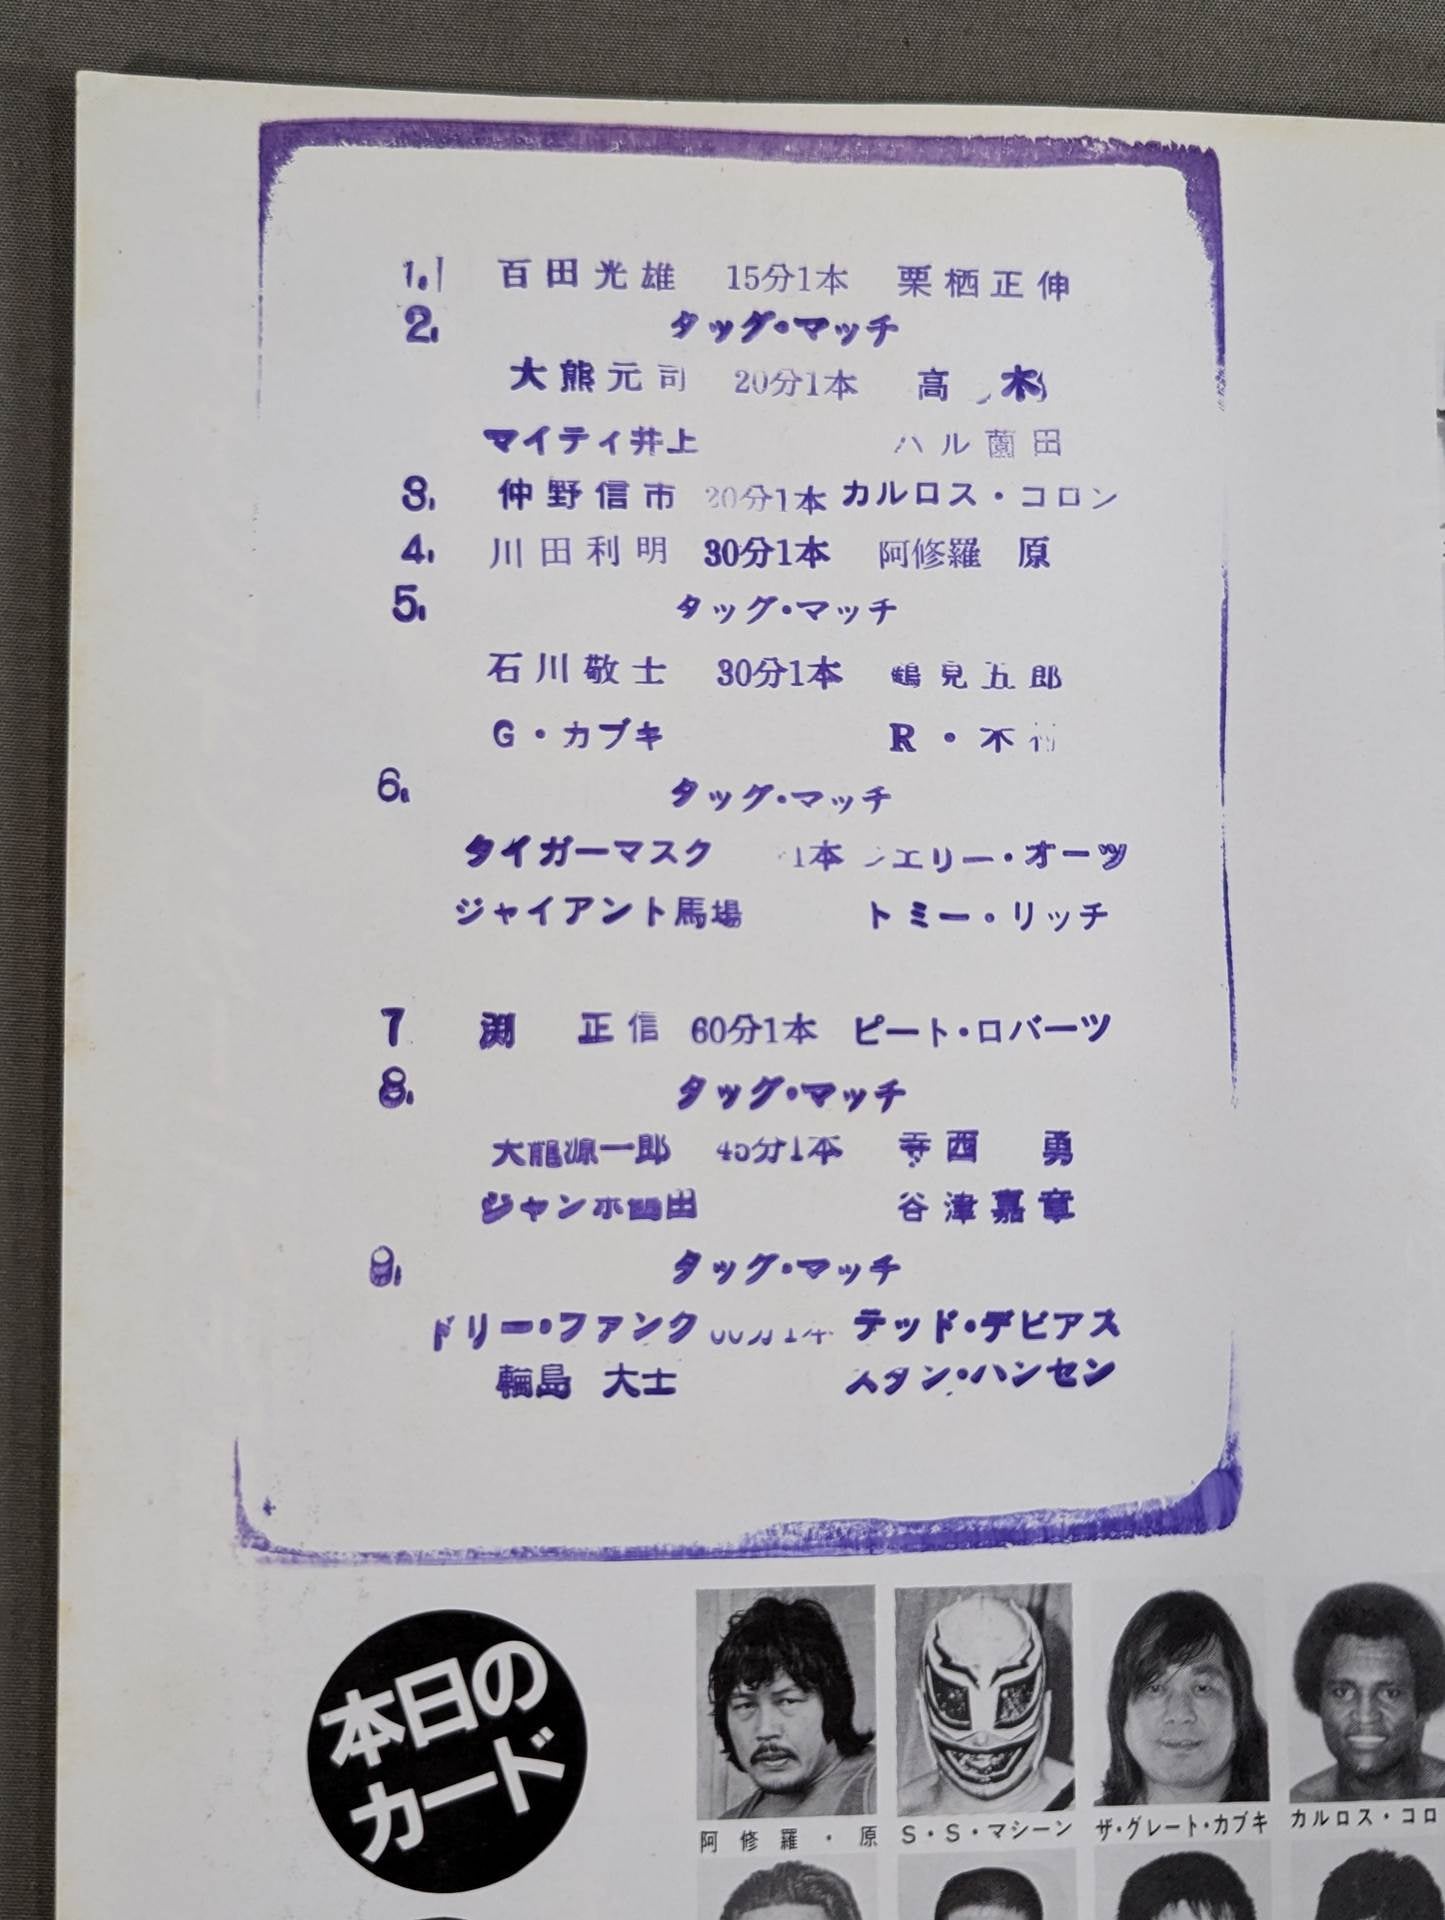 1. 百田光雄 15分1本 栗栖正伸
2. タッグ・マッチ
大熊元司 20分1本 高木
マイティ井上 ハル薗田
3. 仲野信市 20分1本 カルロス・コロン
4. 川田利明 30分1本 阿修羅 原
5. タッグ・マッチ
石川敬士 30分1本 鶴見五郎
G・カブキ R・不
6. タッグ・マッチ
タイガーマスク 1本 ェリー・オーツ
ジャイアント馬場 トミー・リッチ
7 渕 正信 60分1本 ピート・ロバーツ
8. タッグ・マッチ
天龍源一郎 45分1本 寺西 勇
ジャンボ鶴田 谷津嘉章
9. タッグ・マッチ
ドリー・ファンク 分1本 テッド・デビアス
輪島 大士 スタン・ハンセン
本日の
カード
阿修羅・原 S・S・マシーン ザ・グレート・カブキ カルロス・コロ